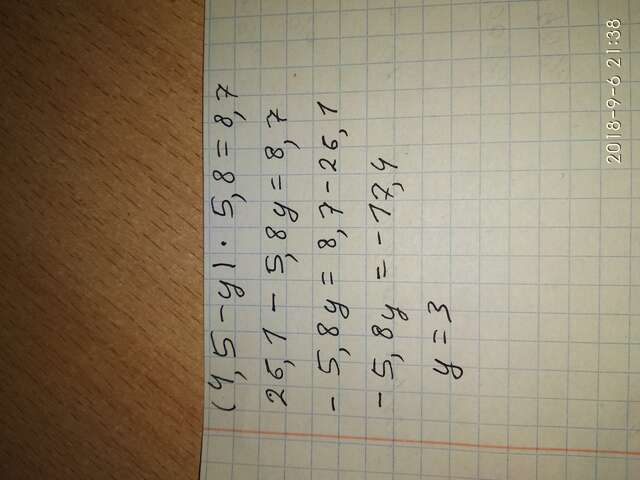 (4,5-y) · 5,8 = 8,7
26,1 - 5,8y = 8,7
- 5,8y = 8,7 - 26,1
- 5,8y = -17,4
y = 3
2018-9-6 21:38